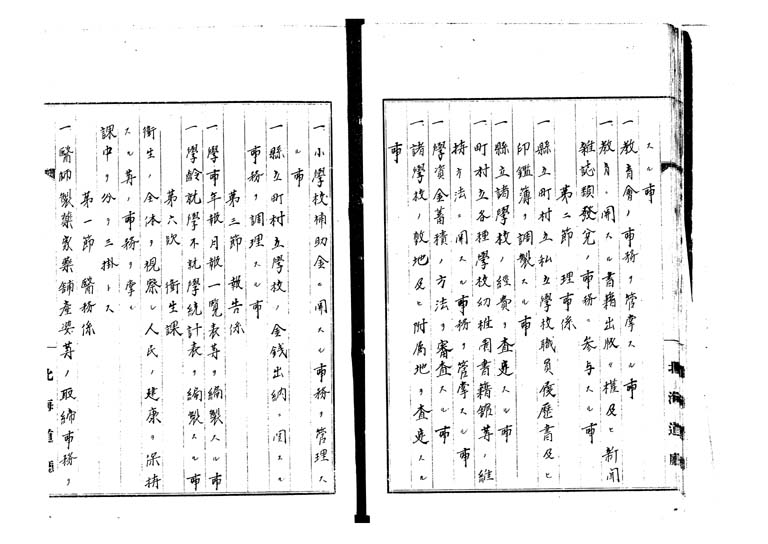 スル事
一教育會ノ事務ヲ管掌スル事
一教育ニ関スル書籍出版ノ權及ヒ新聞
雜誌類發兌ノ事務ニ参与スル事
第二節 理事係
一縣立町村立私立學校職員履歴書及ヒ
印鑑簿ヲ調製スル事
一縣立諸學校ノ經費ヲ査定スル事
一町村立各種學校幼稚園書籍舘等ノ維
持方法ニ関スル事務ヲ管掌スル事
一學資金蓄積ノ方法ヲ審査スル事
一諸學校ノ敷地及ヒ附属地ヲ査定スル
事
北海道廳
一小學校補助金ニ関スル事務ヲ管理ス
ル事
一縣立町村立學校ノ金銭出納ニ関スル
事務ヲ調理スル事
第三節 報告係
一學事年報月報一覧表等ヲ編製スル事
一學齢就學不就學統計表ヲ編製スル事
第六次 衛生課
衛生ノ全体ヲ視察シ人民ノ健康ヲ保持
スル等ノ事務ヲ掌ル
課中ヲ分ヲ三掛トス
第一節 醫務係
一醫師製藥家藥舗産婆等ノ取締事務ヲ
北海道廳